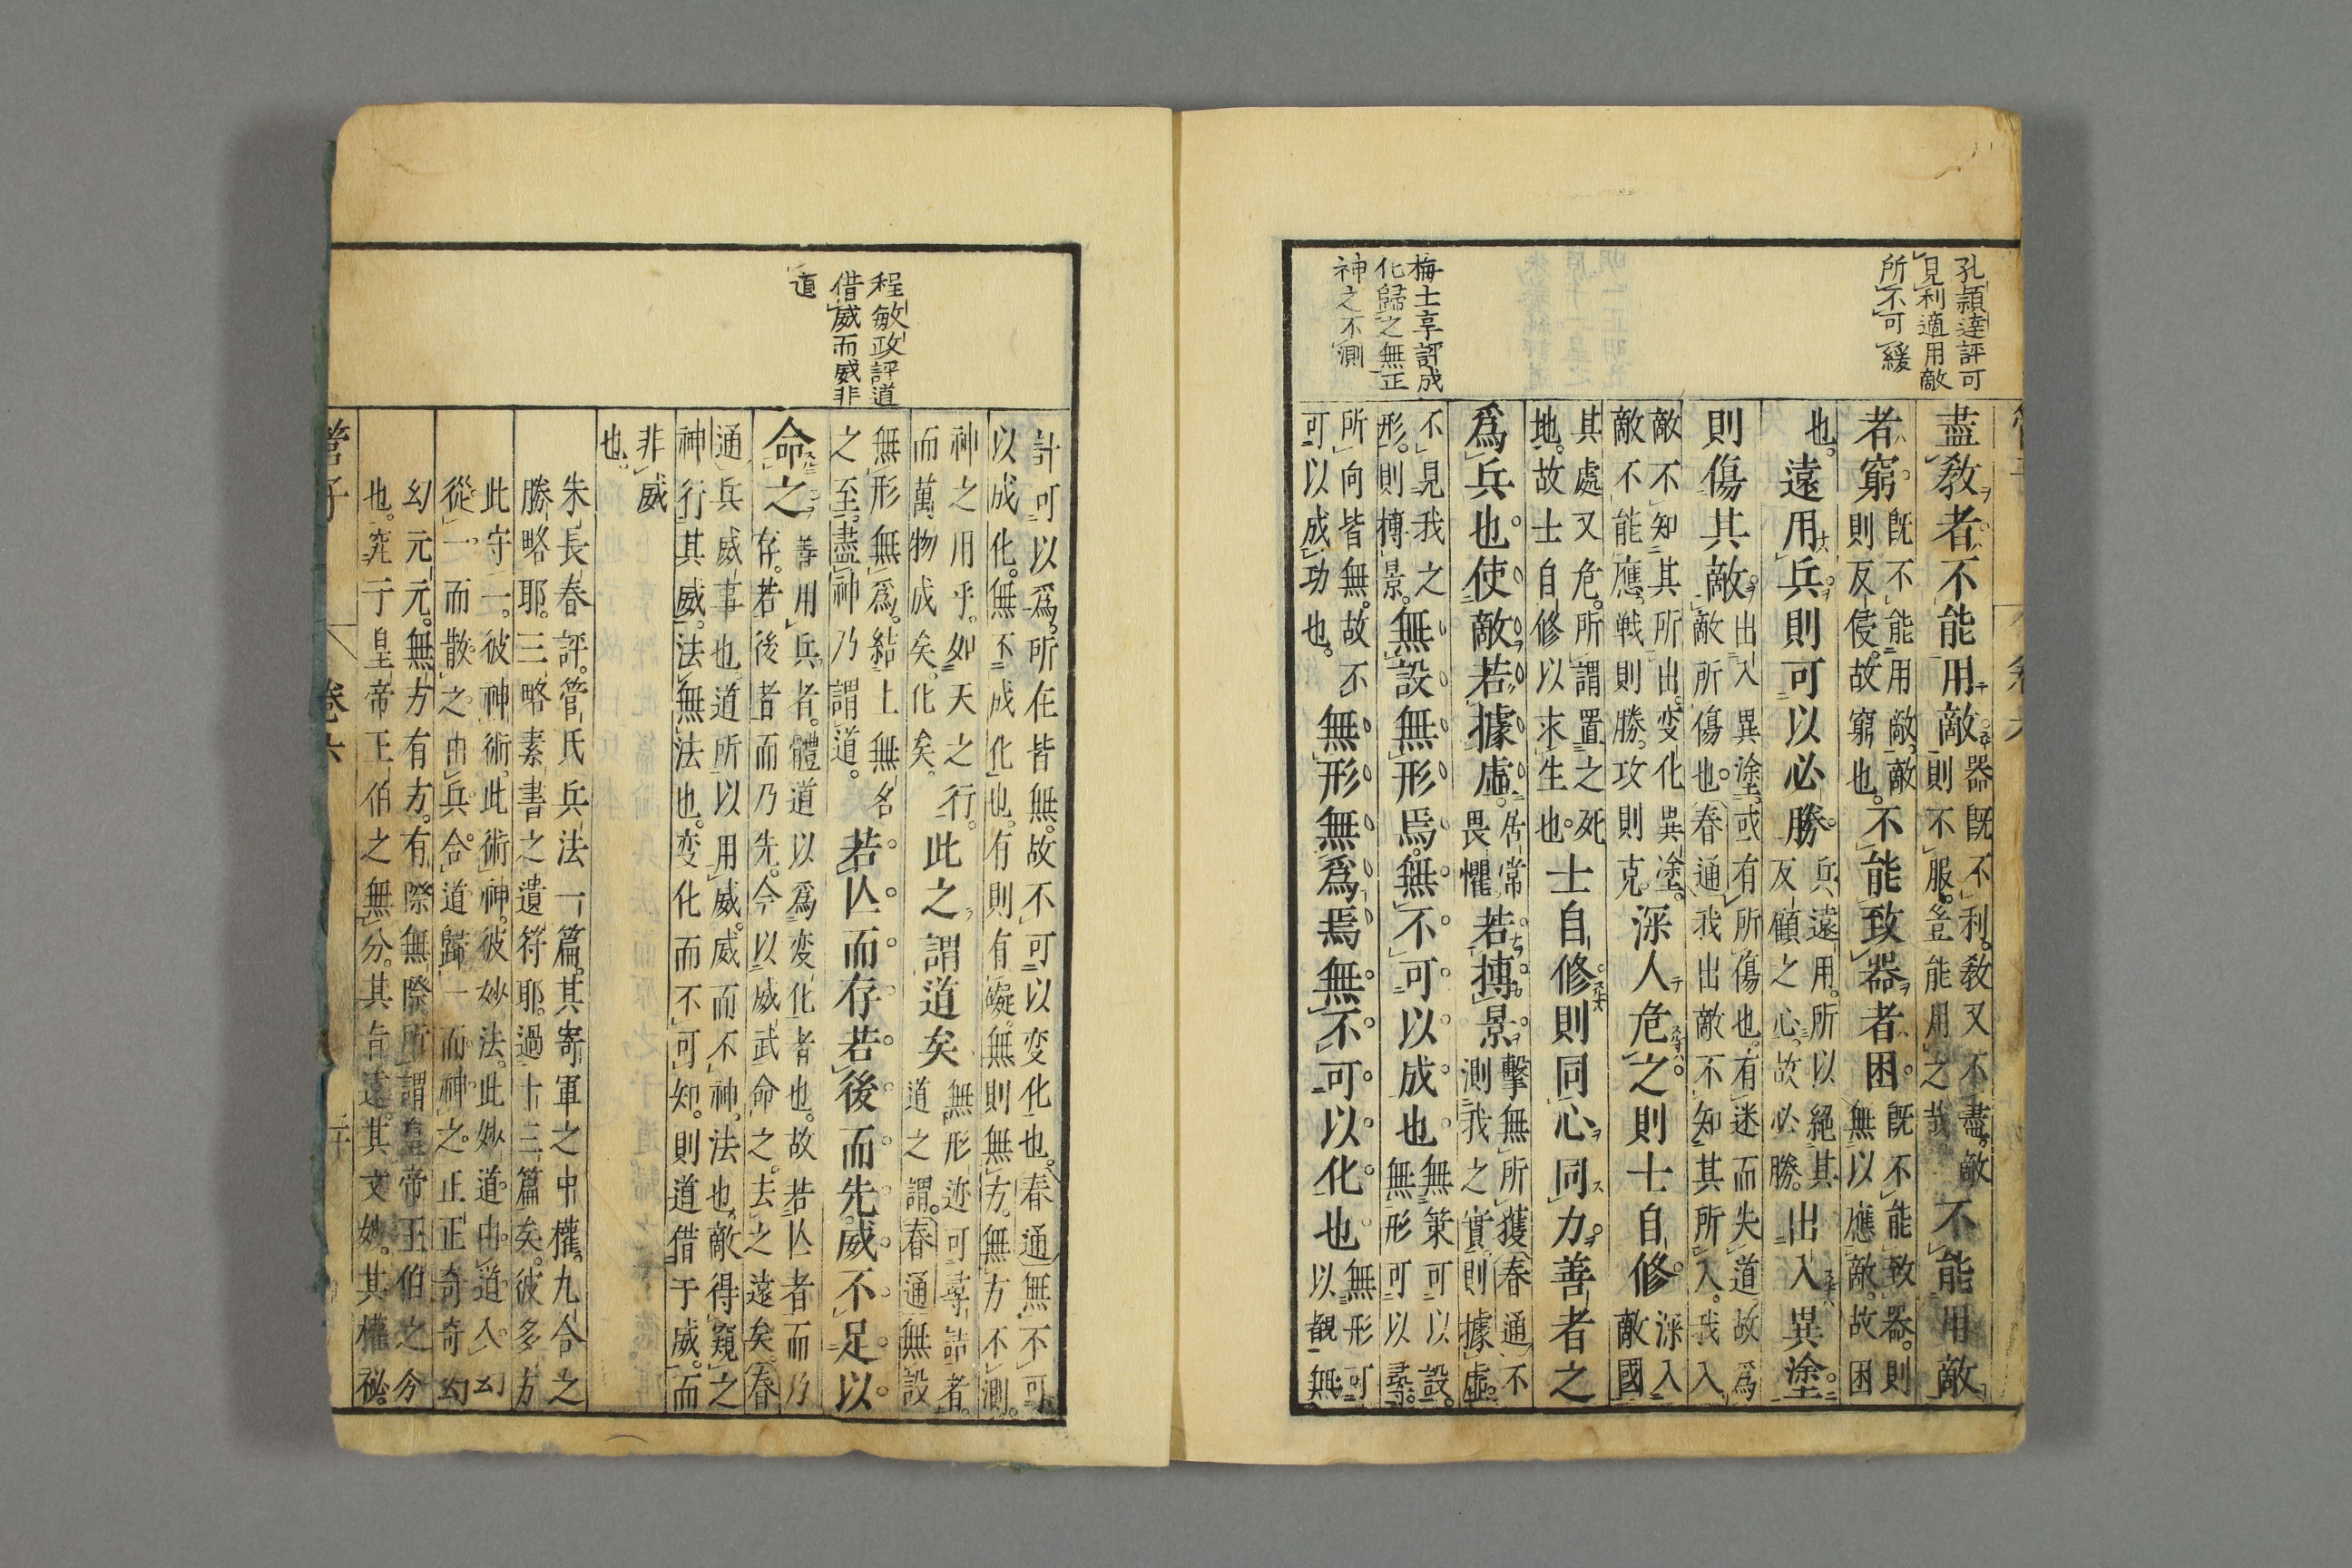 孔頴達評可
見利適用敵
所不可緩
梅士享評成
化歸之無正
神之不測
盡教者不能用敵器既不利敎又不盡敵
則不服豈能用之哉不能用敵
者窮既不能用敵敵
則反侵故窮也不能致器者困既不能致器則
無以應敵故困
也遠用兵則可以必勝兵遠用所以絕其
反顧之心故必勝出入異塗
則傷其敵出入異塗或有所傷也有迷而失道故爲
敵所傷也春通我出敵不知其所入我入
敵不知其所出变化異塗
敵不能應戦則勝攻則克深人危之則士自修深入
敵國
其處又危所謂置之死
地故士自修以求生也士自修則同心同力善者之
爲兵也使敵若據虛居常
畏懼若搏景擊無所獲春通不
測我之實則據虛
不見我之
形則摶景無設無形焉無不可以成也無策可以設
無形可以尋
所向皆無故不
可以成功也無形無爲焉無不可以化也無形可
以観無
程敏政評道
借威而威非
道
計可以爲所在皆無故不可以变化也春通無不可
以成化無不成化也有則有礙無則無方無方不測
神之用乎如天之行
而萬物成矣化矣此之謂道矣無形迹可尋詰者
道之謂春通無設
無形無爲結上無名
之至盡神乃謂道若亾而存若後而先威不足以
命之善用兵者體道以爲变化者也故若亾者而乃
存若後者而乃先今以威武命之去之遠矣春
通兵威事也道所以用威威而不神法也敵得窺之
神行其威法無法也变化而不可知則道借于威而
非威
也
朱長春評管氏兵法一篇其寄軍之中權九合之
勝略耶三略素書之遺符耶過十三篇矣彼多方
此守一彼神術此術神彼妙法此妙道由道入幻
從一而散之由兵合道歸一而神之正正奇奇幻
幻元元無方有方有際無際所謂皇帝王伯之分
也究于皇帝王伯之無分其旨遠其文妙其權祕
管子
卷六